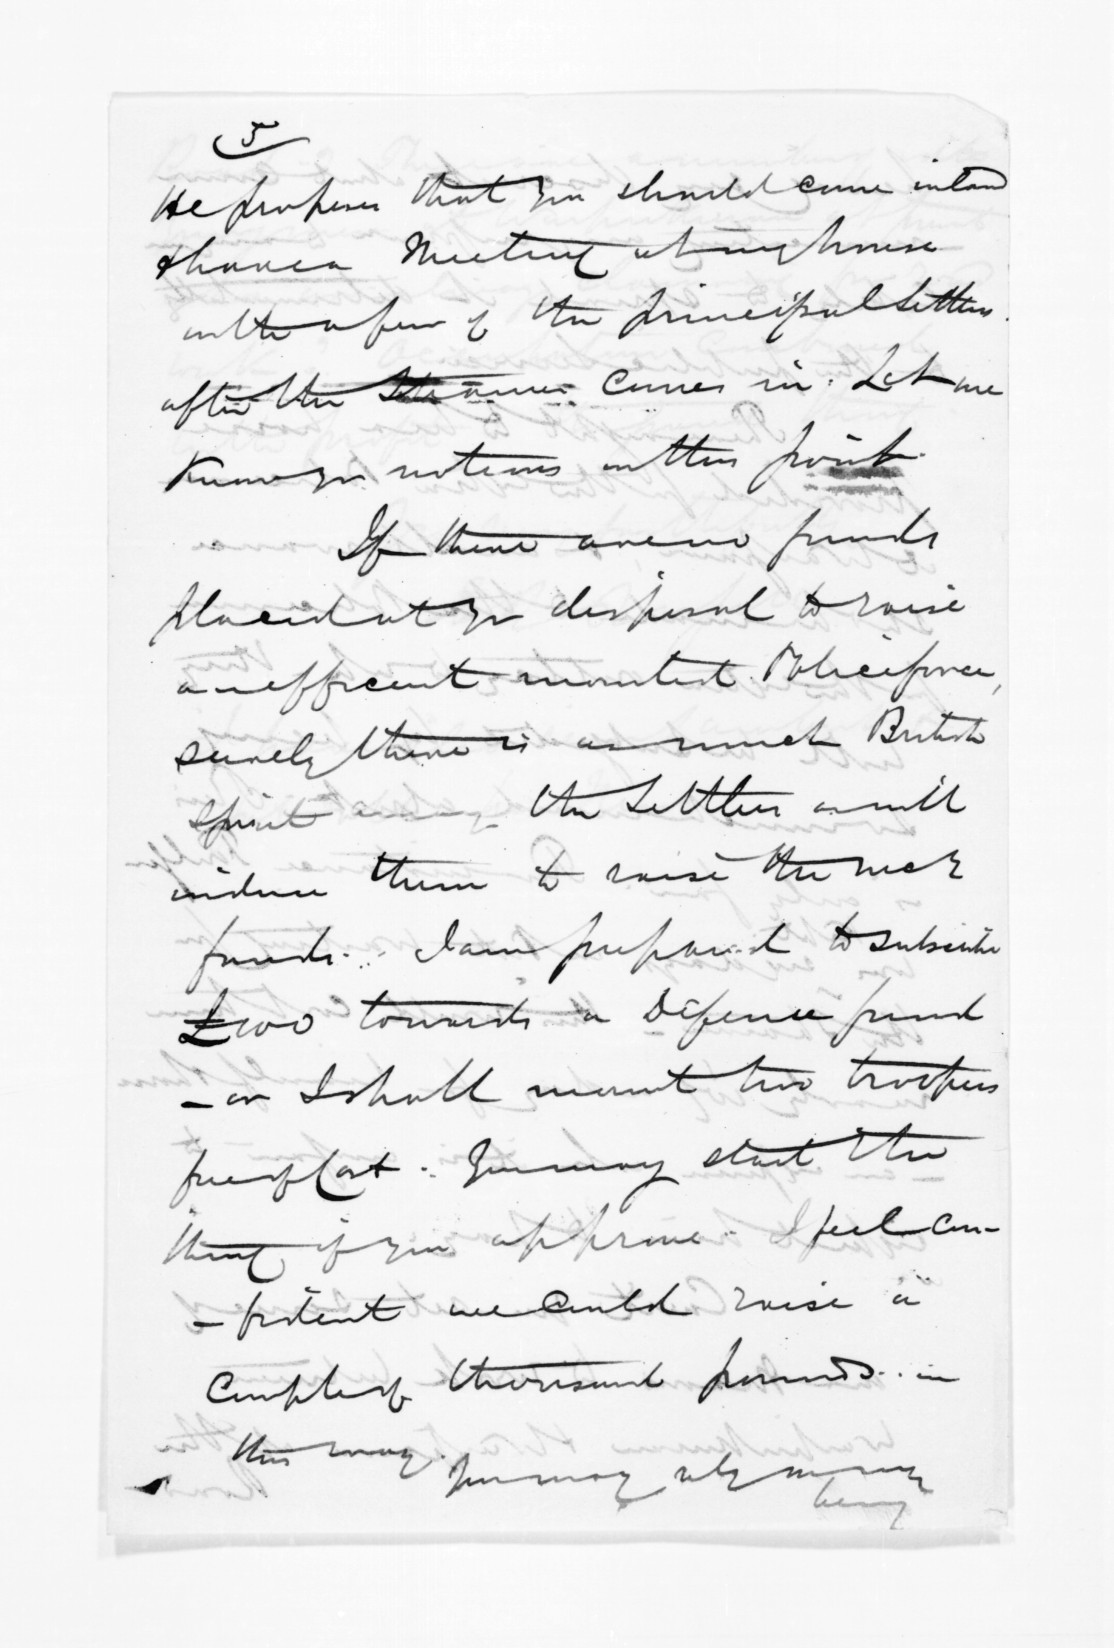 5
He proposes that you should come inland
& have a Meeting at my house
with a few of the principal Settlers
after the Steamer comes in. Let me
Know yr notions on this point.
If there are no funds
placed at yr disposal to raise
an efficient mounted Police force,
surely there is as much British
spirit among the Settlers as will
induce them to raise the necy
funds. I am prepared to subscribe
£100 towards a Defence fund
- or I shall mount two troopers
free of Cost. You may start the
thing if you approve. I feel con-
- fident we could raise a
Couple of thousand pounds in
this way.
You may rely on my
being